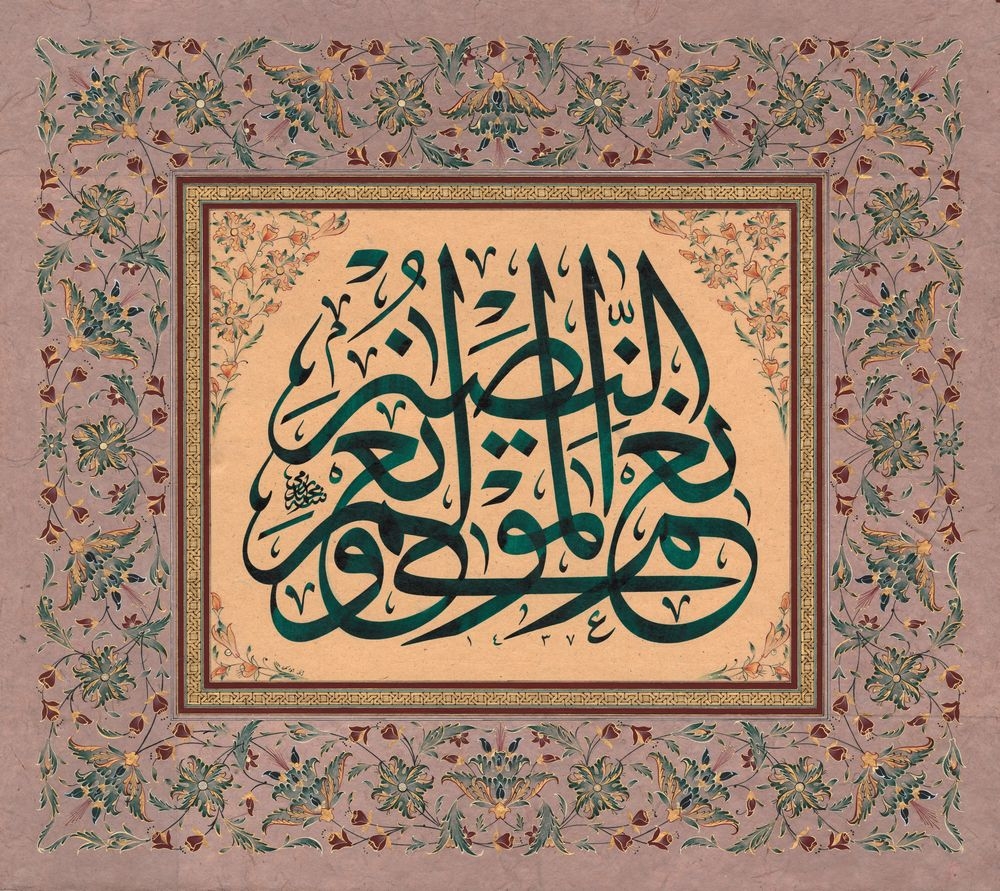 نعم المولى ونعم النصير
١٤٣٧